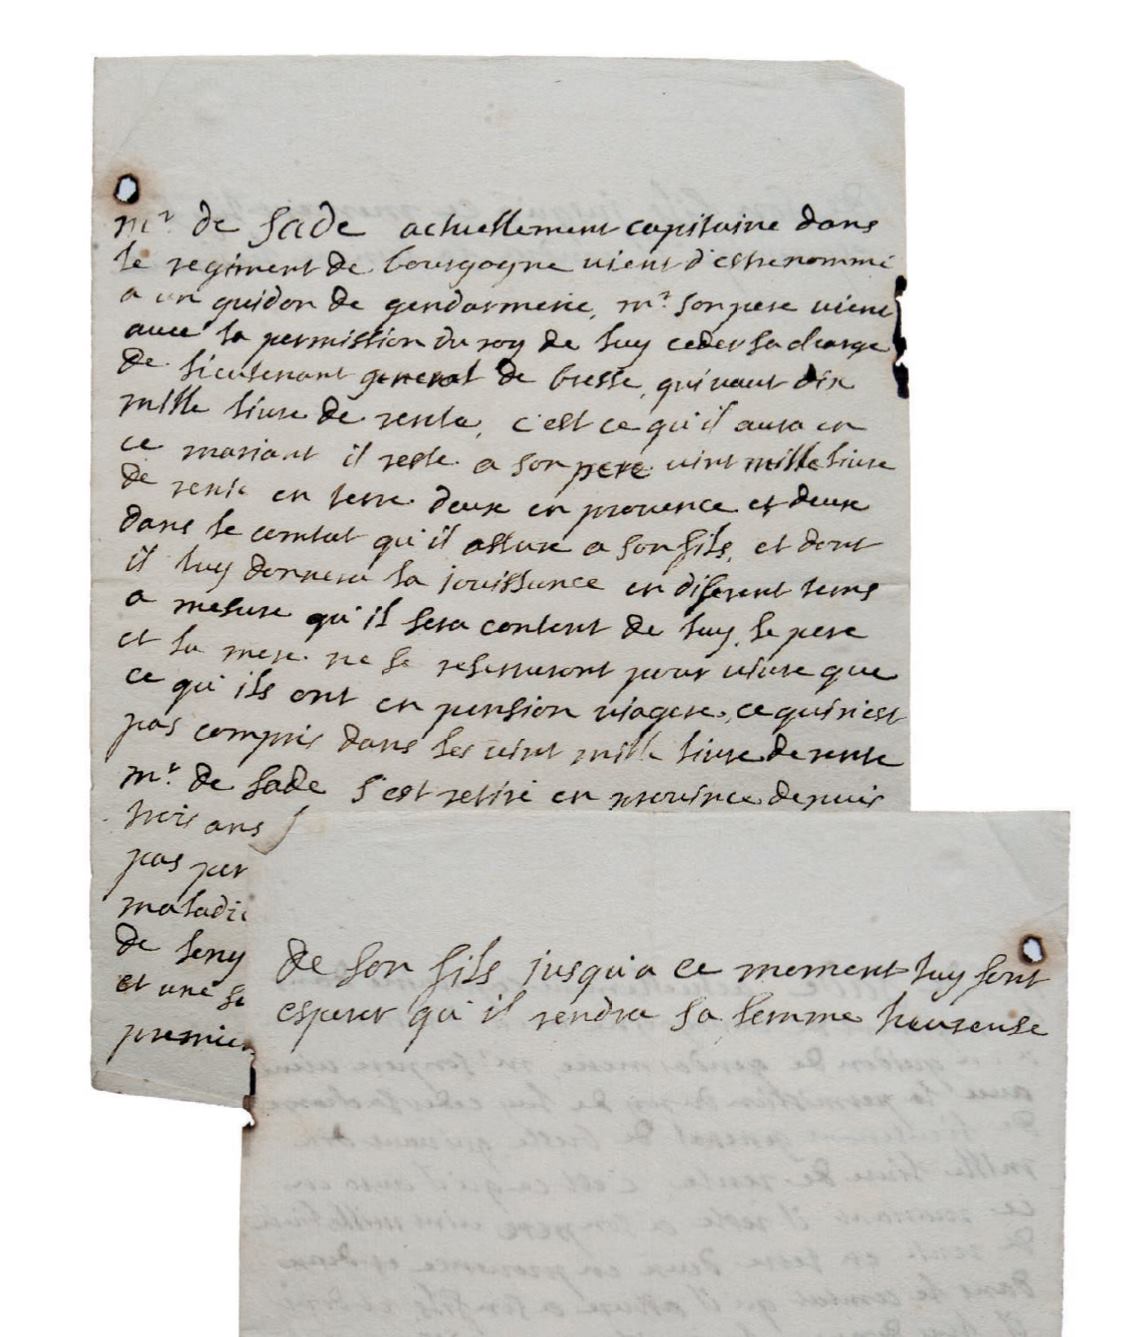 mr. de Sade actuellement capitaine dans
le regiment de bourgogne vient d'estre nommé
a un guidon de gendarmerie, mr son pere vient
avec la permission du roy de luy ceder sa charge
de lieutenant general de bresse, qui vaut dix
mille livre de rente, c'est ce qu'il aura en
ce mariant il reste a son pere vint mille livre
de rente en terre deux en provence et deux
dans le comtat qu'il assure a son fils, et dont
il luy donnera la jouissance en diferent tems
a mesure qu'il sera content de luy, le pere
et la mere ne se reserveront pour vivre que
ce qu'ils ont en pension viagere, ce qui n'est
pas compris dans les vint mille livre de rente
mr. de sade s'est retiré en province depuis
trois ans
pas per
maladi
de
et une se
premier
de son fils jusqu'a ce moment luy font
esperer qu'il rendra sa femme heureuse